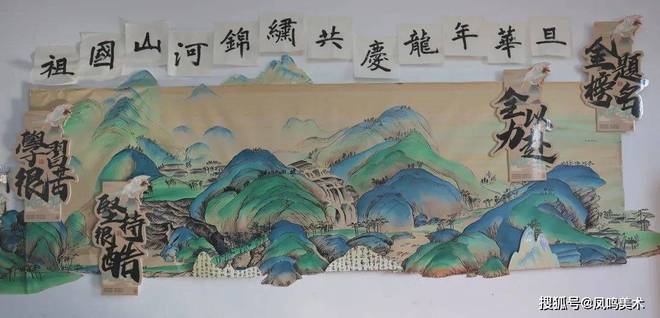 祖國山河錦繡共慶龍年華旦
金榜題名
全力以赴
學習很苦
堅持很酷
搜狐号@凤鸣美术